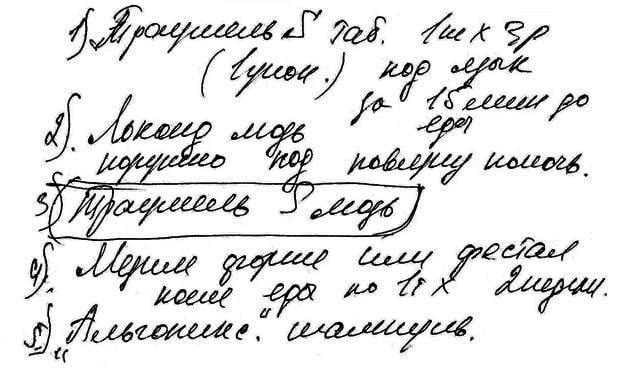 1) Траумель S таб. 1т х 3р
(1 упак.) под язык
за 15 мин до
еды
2). Локоид мазь
наружно под повязку на ночь.
3) Траумель S мазь
4). Мезим форте или фестал
после еды по 1т х 2 недели.
5) "Альгопикс." шампунь.